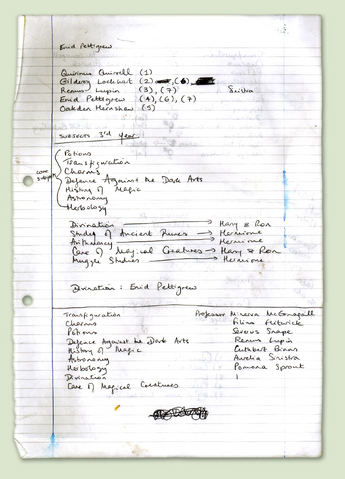 Enid Pettigrew
Quirinus Quirrell (1)
Gilderoy Lockhart (2) (6)
Remus Lupin (3), (7) Sinistra
Enid Pettigrew (4), (6), (7)
Oakden Hobday (5)
SUBJECTS 3'd Year.
core subjects
Potions
Transfiguration
Charms
Defence Against the Dark Arts
History of Magic
Astronomy
Herbology
Divination → Harry & Ron
Study of Ancient Runes → Hermione
Arithmancy → Hermione
Care of Magical Creatures → Harry & Ron
Muggle Studies → Hermione
Divination : Enid Pettigrew
Transfiguration Professor Minerva McGonagall
Charms Filius Flitwick
Potions Severus Snape
Defence Against the Dark Arts Remus Lupin
History of Magic Cuthbert Binns
Astronomy Aurelia Sinistra
Herbology Pomona Sprout
Divination
Care of Magical Creatures